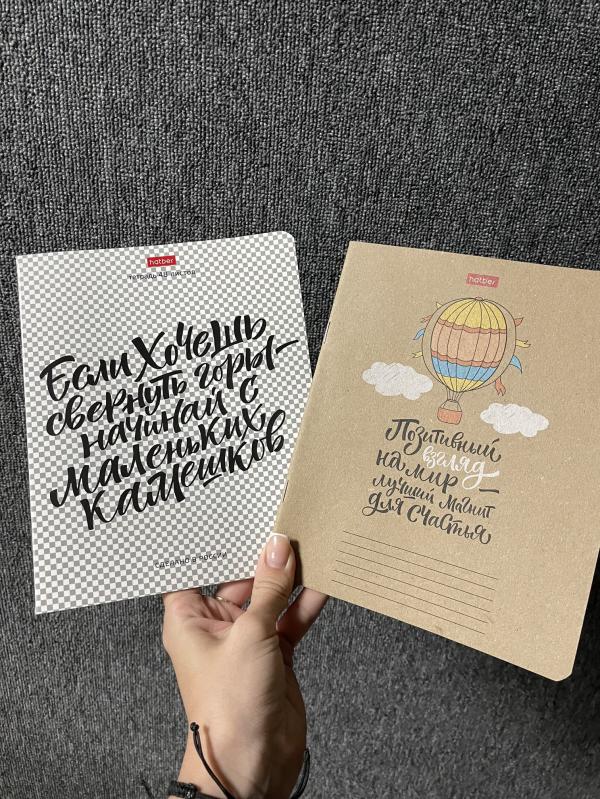 hatber
тетрадь 48 листов
Если Хочешь
свернуть горы —
начинай с
маленьких
камешков
СДЕЛАНО В РОССИИ
hatber
Позитивный
взгляд
на мир —
лучший магнит
для счастья